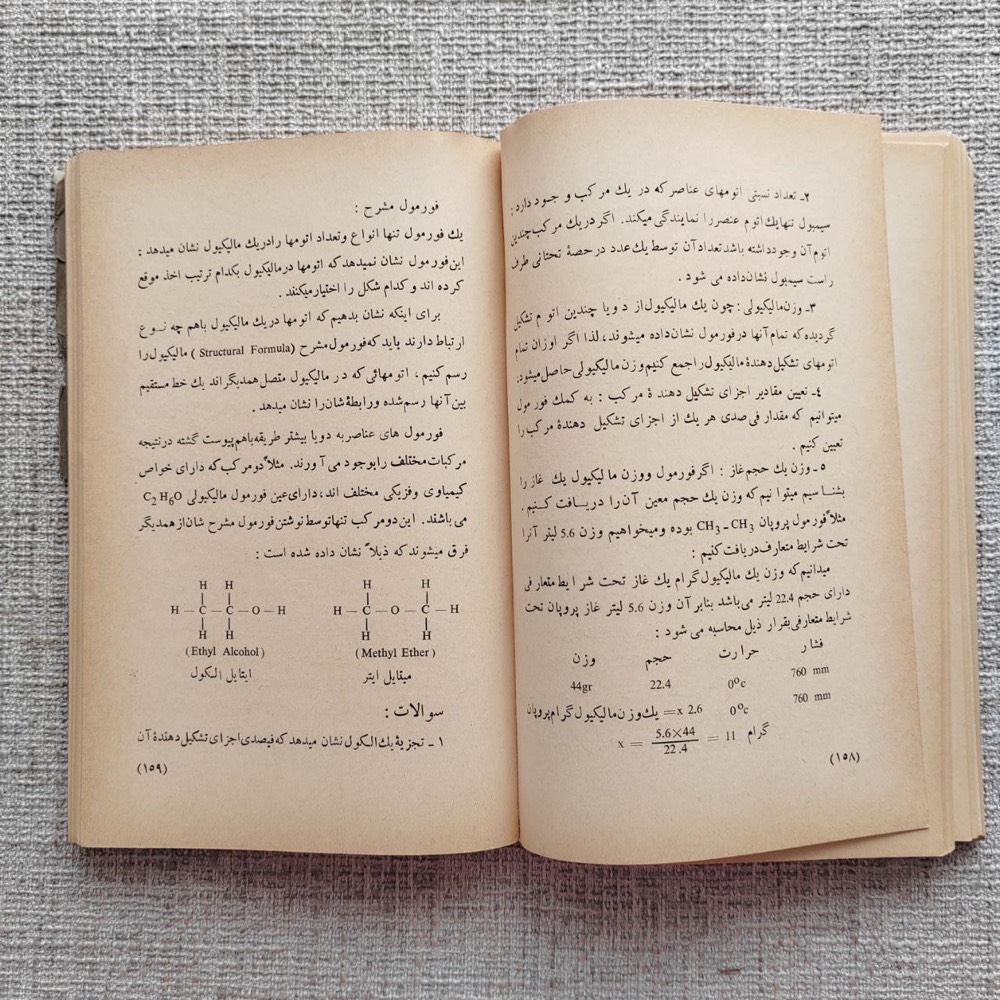 ۲ـ تعداد نسبتی اتومهای عناصر که در یك مرکب و جود دارد :
سیمبول تنها یك اتوم عنصر را نمایندگی میکند. اگر در یك مرکب چندین
اتوم آن وجود داشته باشد تعداد آن توسط یك عدد در حصهٔ تحتانی طرف
راست سیمبول نشان داده می شود .
۳ـ وزن مالیکیولی : چون یك مالیکیول از دو یا چندین اتوم تشکیل
گردیده که تمام آنها در فورمول نشان داده میشوند، لذا اگر اوزان تمام
اتومهای تشکیل دهندهٔ مالیکیول را جمع کنیم وزن مالیکیولی حاصل میشود:
٤ـ تعیین مقادیر اجزای تشکیل دهندهٔ مرکب : به کمك فورمول
میتوانیم که مقدار فی صدی هر یك از اجزای تشکیل دهندهٔ مرکب را
تعیین کنیم .
۵ ـ وزن یك حجم غاز : اگر فورمول و وزن مالیکیول یك غاز را
بشناسیم میتوانیم که وزن یك حجم معین آن را دریافت کنیم .
مثلاً فورمول پروپان CH3 – CH3 بوده و میخواهیم وزن 5.6 لیتر آنرا
تحت شرایط متعارف دریافت کنیم :
میدانیم که وزن یك مالیکیول گرام یك غاز تحت شرایط متعارفی
دارای حجم 22.4 لیتر می باشد بنابر آن وزن 5.6 لیتر غاز پروپان تحت
شرایط متعارفی بقرار ذیل محاسبه می شود :
فشار حرارت حجم وزن
760 mm 0°c 22.4 44gr
760 mm 0°c 2.6 x= یك وزن مالیکیول گرام پروپان
x = 5.6×44 / 22.4 = 11 گرام
(۱۵۸)
فورمول مشرح :
یك فورمول تنها انواع و تعداد اتومها را در یك مالیکیول نشان میدهد :
این فورمول نشان نمیدهد که اتومها در مالیکیول بکدام ترتیب اخذ موقع
کرده اند و کدام شکل را اختیار میکنند .
برای اینکه نشان بدهیم که اتومها در یك مالیکیول باهم چه نوع
ارتباط دارند باید که فورمول مشرح (Structural Formula) مالیکیول را
رسم کنیم ، اتومهائی که در مالیکیول متصل همدیگر اند یك خط مستقیم
بین آنها رسم شده و رابطهٔ شان را نشان میدهد .
فورمول های عناصر به دو یا بیشتر طریقه باهم پیوست گشته در نتیجه
مرکبات مختلف را بوجود می آورند. مثلاً دو مرکب که دارای خواص
کیمیاوی و فزیکی مختلف اند، دارای عین فورمول مالیکیولی C2 H6O
می باشند . این دو مرکب تنها توسط نوشتن فورمول مشرح شان از همدیگر
فرق میشوند که ذیلاً نشان داده شده است :
H H H H
H – C – C – O – H H – C – O – C – H
H H H H
(Ethyl Alcohol) (Methyl Ether)
ایتایل الکول میتایل ایتر
سوالات :
۱ ـ تجزیهٔ یك الکول نشان میدهد که فیصدی اجزای تشکیل دهندهٔ آن
(۱۵۹)